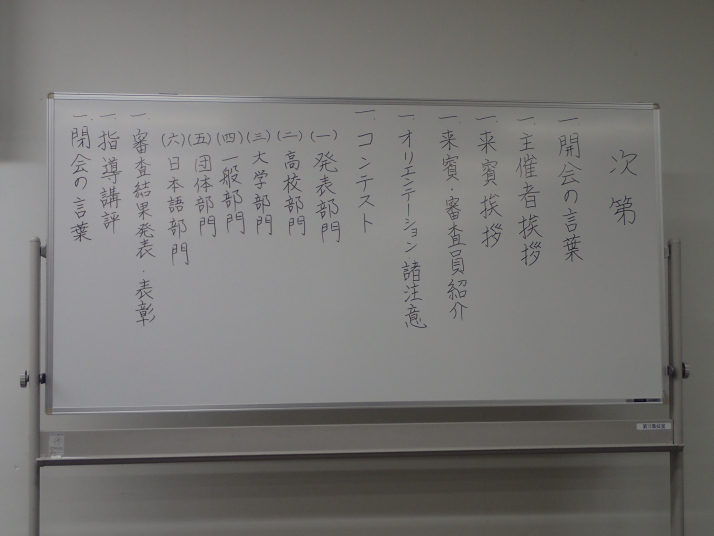 次第
一.開会の言葉
一.主催者挨拶
一.来賓挨拶
一.来賓・審査員紹介
一.オリエンテーション 諸注意
一.コンテスト
(一)発表部門
(二)高校部門
(三)大学部門
(四)一般部門
(五)団体部門
(六)日本語部門
一.審査結果発表・表彰
一.指導講評
一.閉会の言葉